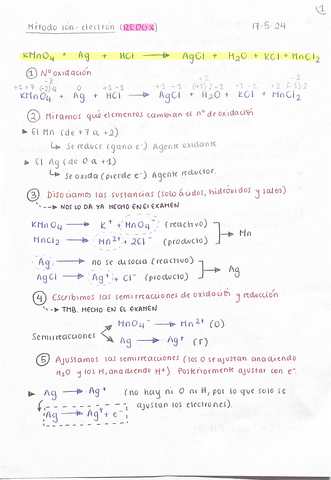 1
Método ión-electrón (REDOX) 17-5-24
KMnO4 + Ag + HCl → AgCl + H2O + KCl + MnCl2
① Nº oxidación
KMnO4 + Ag + HCl → AgCl + H2O + KCl + MnCl2
② Miramos qué elementos cambian el nº de oxidación
► El Mn (de +7 a +2)
↳ Se reduce (gana e⁻) Agente oxidante
► El Ag (de 0 a +1)
↳ Se oxida (pierde e⁻) Agente reductor.
③ Disociamos las sustancias (solo ácidos, hidróxidos y sales)
→ NOS LO DA YA HECHO EN EL EXAMEN
KMnO4 → K⁺ + MnO4⁻ (reactivo)
→ Mn
MnCl2 → Mn²⁺ + 2Cl⁻ (producto)
Ag → no se disocia (reactivo)
→ Ag
AgCl → Ag⁺ + Cl⁻ (producto)
④ Escribimos las semirreacciones de oxidación y reducción
→ TMB. HECHO EN EL EXAMEN
MnO4⁻ → Mn²⁺ (O)
Semirreacciones
Ag → Ag⁺ (r)
⑤ Ajustamos las semirreacciones (los O se ajustan añadiendo
H2O y los H, añadiendo H⁺) Posteriormente ajustar con e⁻.
► Ag → Ag⁺ (no hay ni O ni H, por lo que solo se
ajustan los electrones).
Ag → Ag⁺ + e⁻